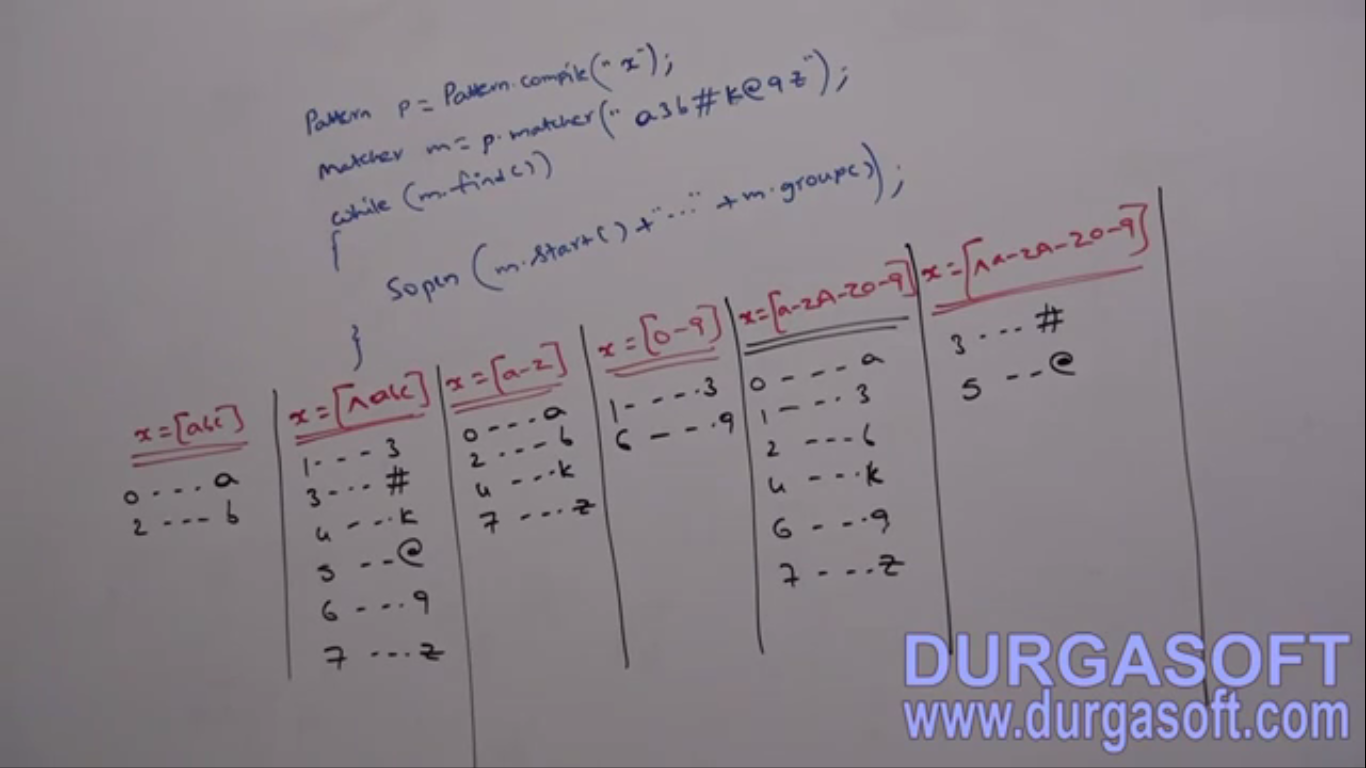 Pattern p = Pattern.compile("x");
Matcher m = p.matcher("a3b#k@9z");
while (m.find())
{
Sopln (m.start() + "..." + m.group());
}
x=[abc]
0 ... a
2 --- b
x=[^abc]
1 --- 3
3 --- #
4 --- k
5 -- @
6 --- 9
7 --- z
x=[a-z]
0 --- a
2 --- b
4 --- k
7 --- z
x=[0-9]
1 ---- 3
6 --- 9
x=[a-zA-Z0-9]
0 --- a
1 --- 3
2 --- b
4 --- k
6 --- 9
7 --- z
x=[^a-zA-Z0-9]
3 --- #
5 -- @
DURGASOFT
www.durgasoft.com